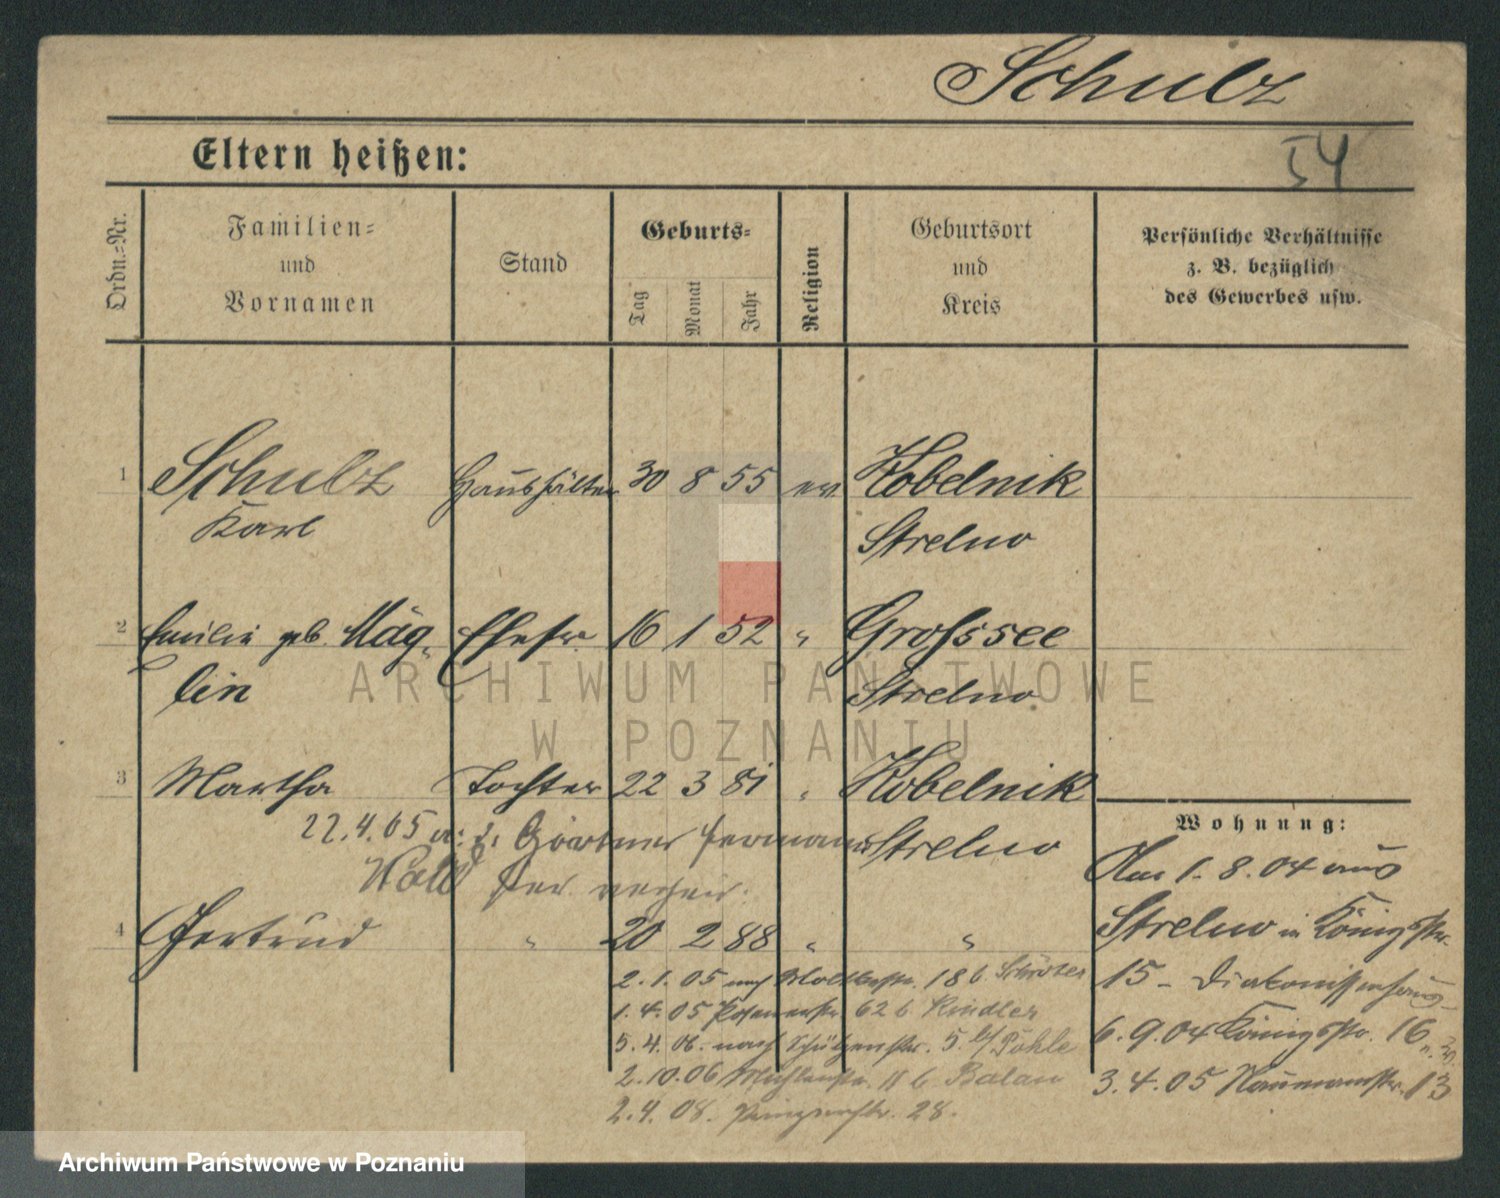 Schulz
54
Eltern heißen:
Ordn.-Nr.
Familien-
und
Vornamen
Stand
Geburts-
Tag
Monat
Jahr
Religion
Geburtsort
und
Kreis
Persönliche Verhältnisse
z. B. bezüglich
des Gewerbes usw.
1 Schulz Haushälter 30 8 55 ev. Kobelnik
Karl Strelno
2 Emilie geb. Mäg- Ehefr. 16 1 52 " Grossee
lin Strelno
3 Martha Tochter 22 3 81 " Kobelnik
22.4.05 Gärtner Hermann Strelno
4 Gertrud " 20 2 88 " "
2.1.05 nach Moltkestr. 18 b. Schröter
1.4.05 Posenerstr. 62 b Rindler
5.4.06. nach Schützenstr. 5. b/ Pohle
2.10.06 Mühlenstr. 11 b Balau
2.4.08. Prinzenstr. 28.
Wohnung:
Am 1.8.04 aus
Strelno in Königstr.
15 - Diakonissenhaus
6.9.04 Königstr. 16
3.4.05 Naumannstr. 13
ARCHIWUM PAŃSTWOWE
W POZNANIU
Archiwum Państwowe w Poznaniu